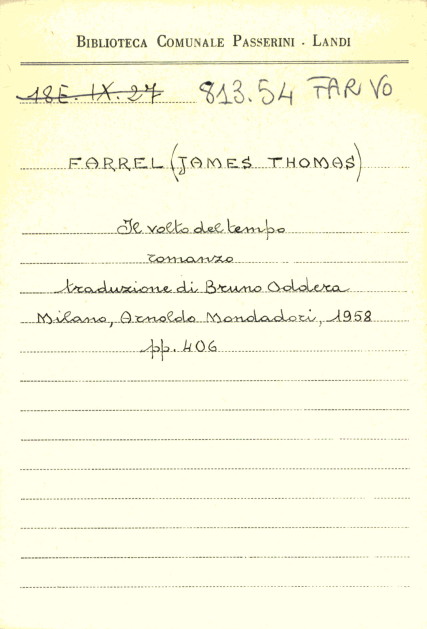 BIBLIOTECA COMUNALE PASSERINI - LANDI
18E. IX. 27 813.54 FAR VO
FARREL (JAMES THOMAS)
Il volto del tempo
romanzo
traduzione di Bruno Oddera
Milano, Arnoldo Mondadori, 1958
pp. 406